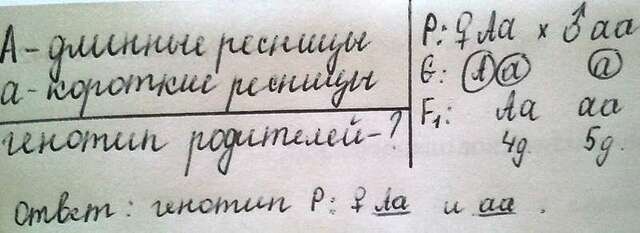 А - длинные ресницы
а - короткие ресницы
генотип родителей - ?
P: ♀ Аа × ♂ аа
G: А а а
F₁: Аа аа
4д. 5д.
Ответ: генотип P: ♀ Аа и аа .